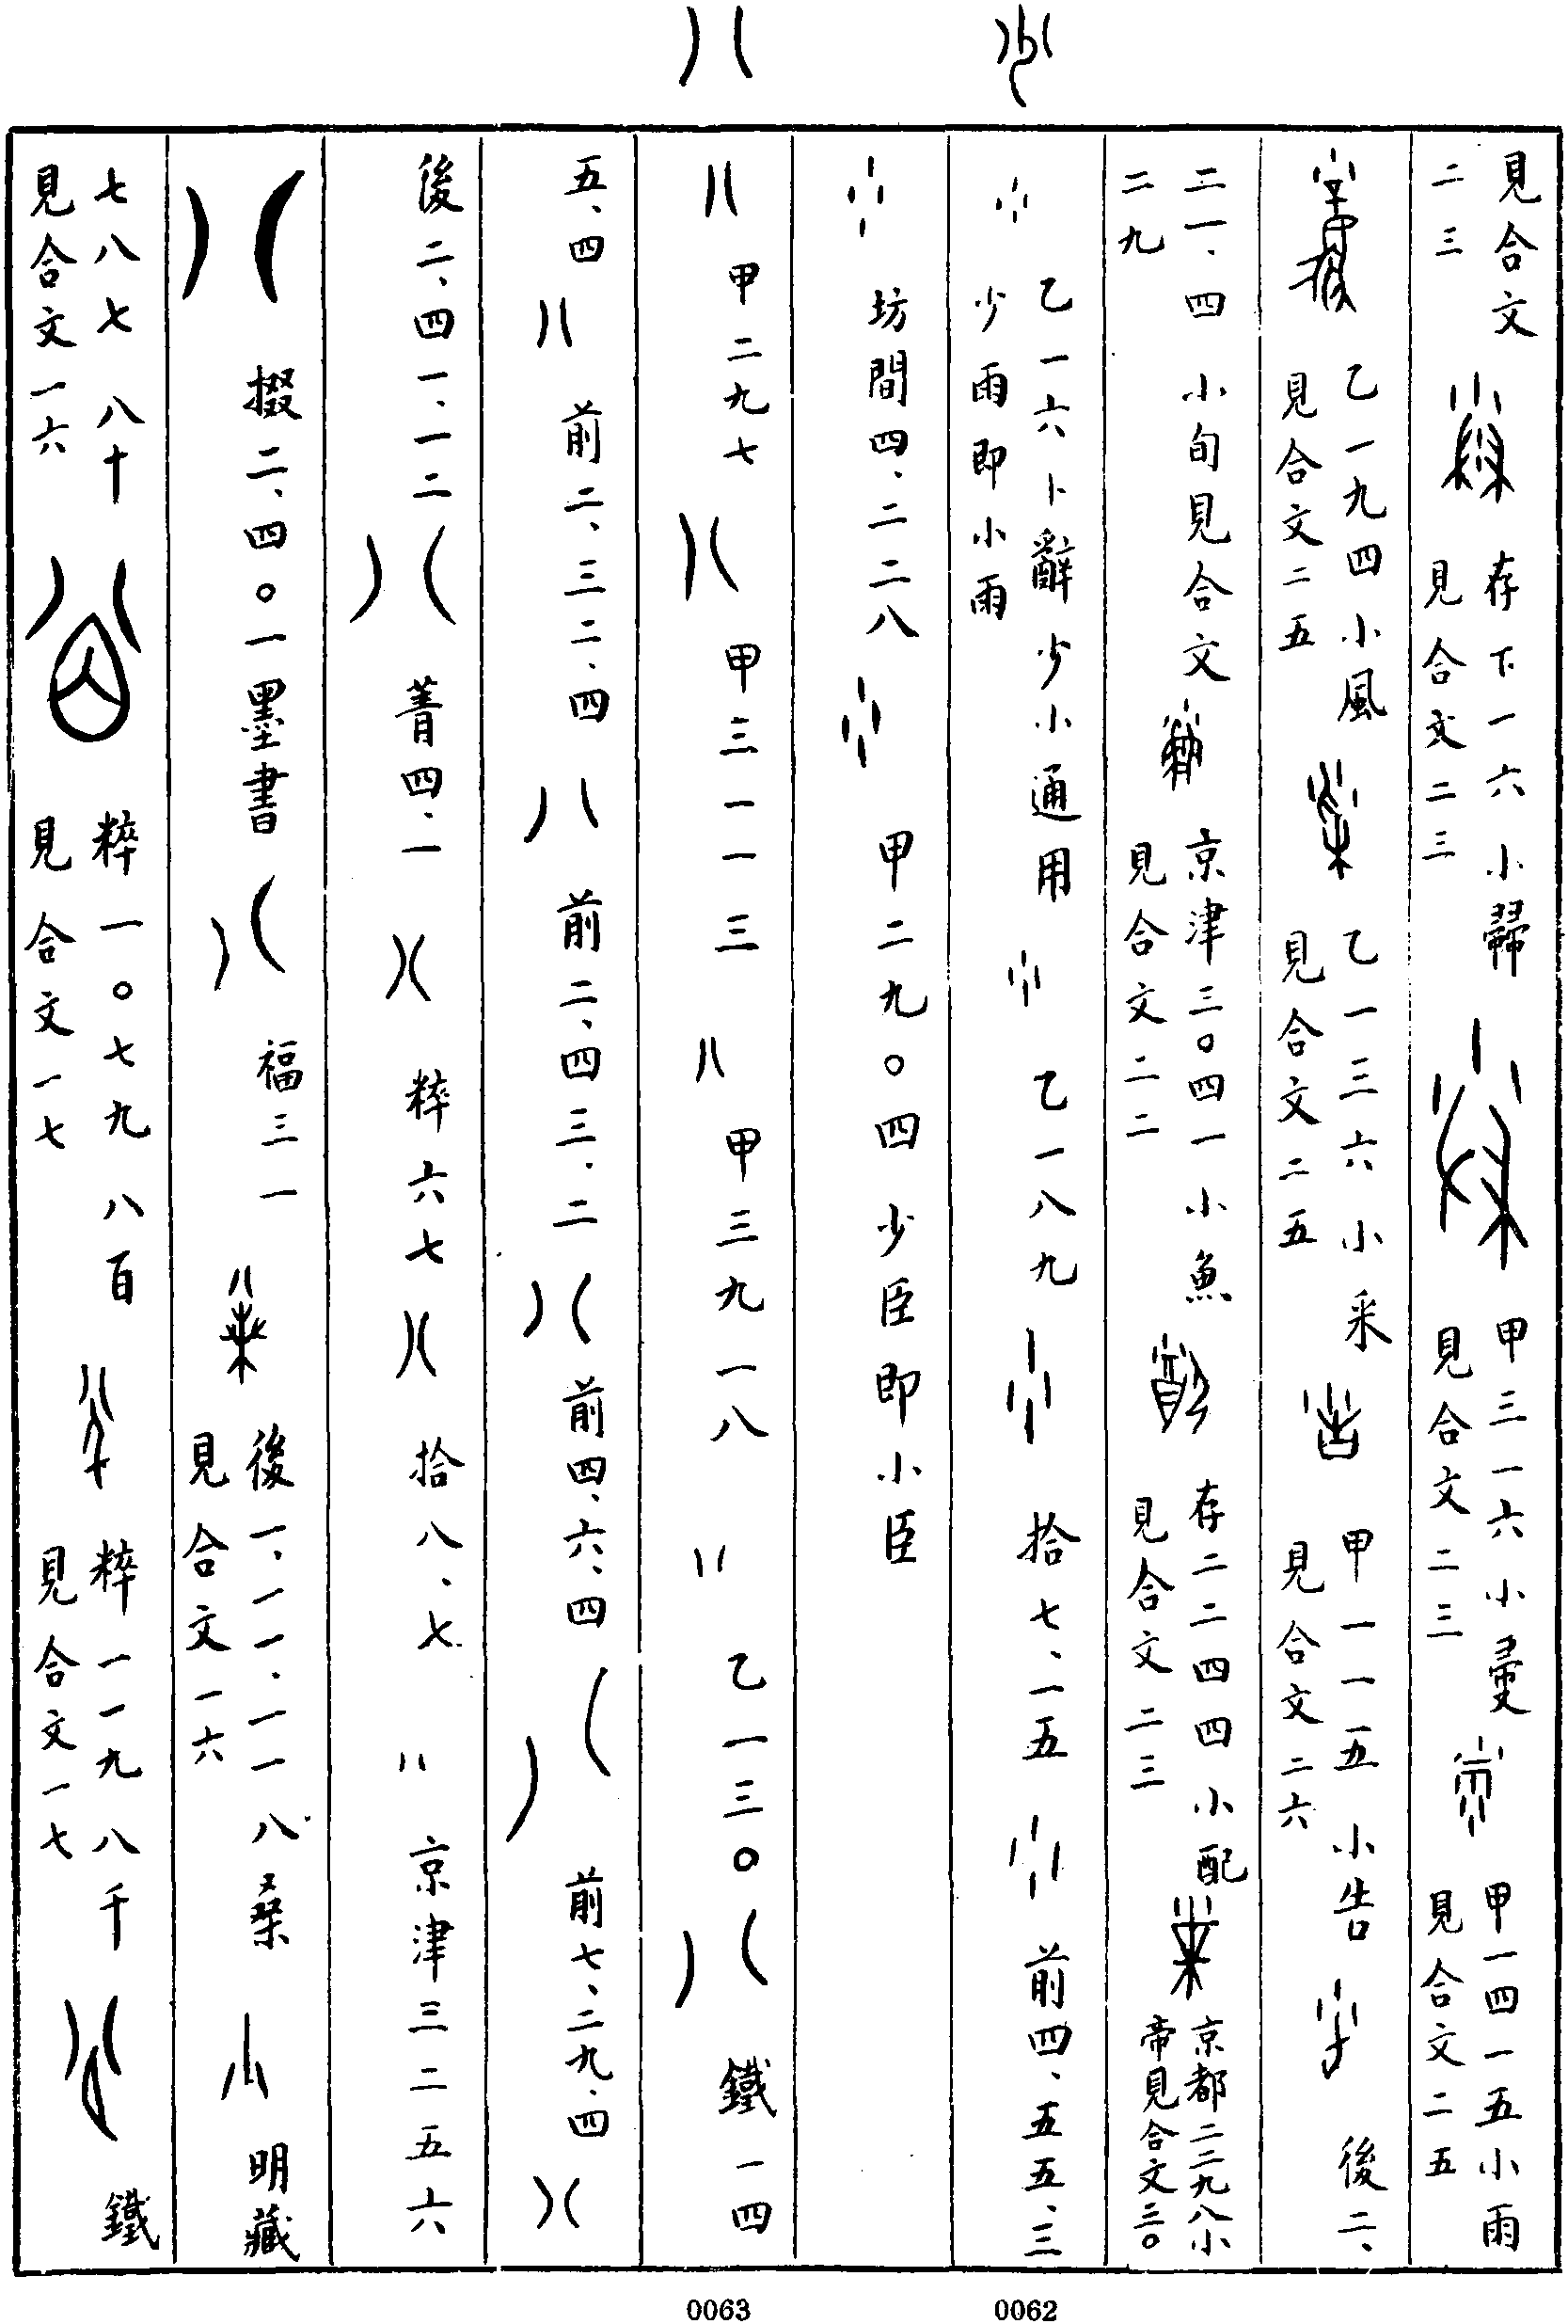 見合文二三 存下一六 小歸 見合文二三 甲三一六 小 見合文二三 甲一四一五小雨 見合文二五
乙一九四小風 見合文二五 乙一三六 小采 見合文二五 甲一一一五 小告 見合文二六 後二、
二一、四 小旬見合文二九 京津三〇四一 小魚 見合文二二 存二二四四 小配 見合文二三 京都二二九八小帝見合文三〇
乙一六卜辭少小通用少雨即小雨 乙一八九 拾七、一五 前四、五五、三
坊間四、二二八 甲二九〇四 少臣即小臣
甲二九七 甲三一一三 甲三九一八 乙一三〇 鐵一四
五、四 前二、三二、四 前二、四三、二 前四、六、四 前七、二九、四
後二、四一、一二 菁四、一 粹六七 拾八、七 京津三二五六
掇二、四〇一墨書 福三一 後一、一一、一一 八桑 見合文一六 明藏
七八七 八十 見合文一六 粹一〇七九 八百 見合文一七 粹一一九 八千 見合文一七 鐵
0062
0063